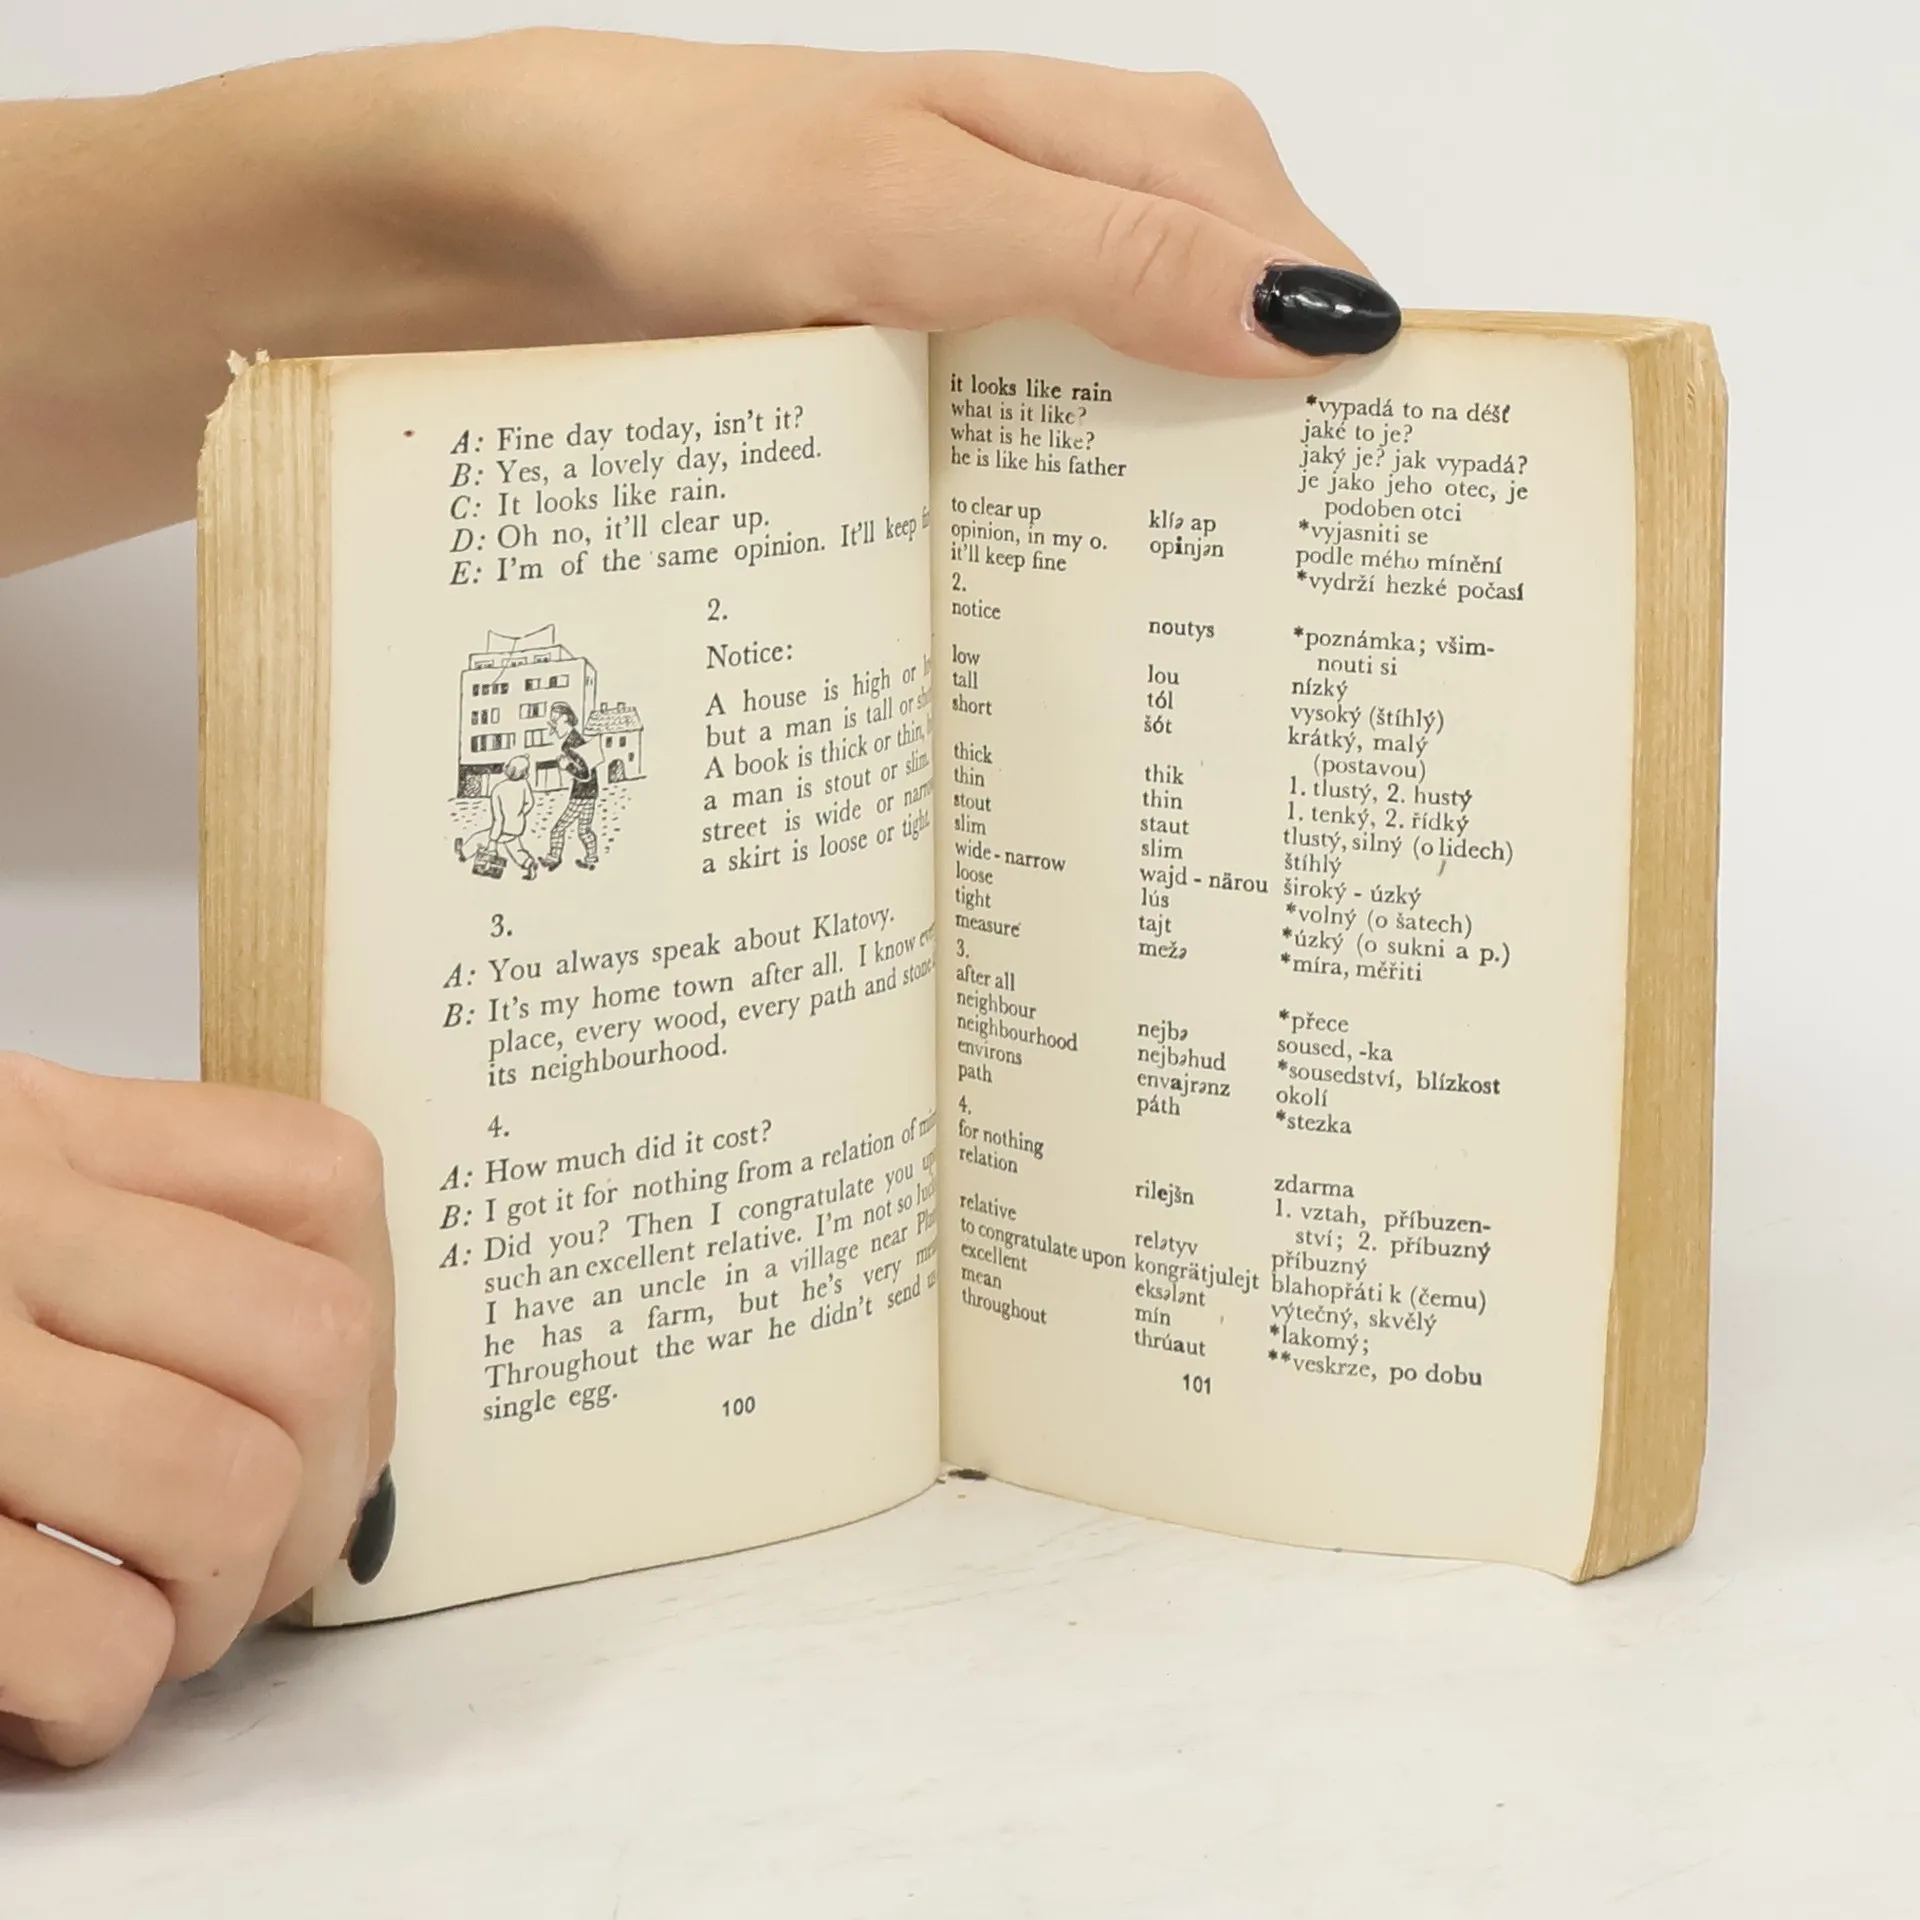 A: Fine day today, isn't it?
B: Yes, a lovely day, indeed.
C: It looks like rain.
D: Oh no, it'll clear up.
E: I'm of the same opinion. It'll keep
2.
Notice:
A house is high or
but a man is tall or
A book is thick or thin,
a man is stout or slim.
street is wide or
a skirt is loose or tight.
3.
A: You always speak about Klatovy.
B: It's my home town after all. I know
place, every wood, every path and stone
its neighbourhood.
4.
A: How much did it cost?
B: I got it for nothing from a relation of
A: Did you? Then I congratulate you
such an excellent relative. I'm not so
I have an uncle in a village near
he has a farm, but he's very
Throughout the war he didn't send
single egg.
100
it looks like rain *vypadá to na déšť
what is it like? jaké to je?
what is he like? jaký je? jak vypadá?
he is like his father je jako jeho otec, je
podoben otci
to clear up klíə ap *vyjasniti se
opinion, in my o. opinjən podle mého mínění
it'll keep fine *vydrží hezké počasí
2.
notice noutys *poznámka; všim-
nouti si
low lou nízký
tall tól vysoký (štíhlý)
short šót krátký, malý
(postavou)
thick thik 1. tlustý, 2. hustý
thin thin 1. tenký, 2. řídký
stout staut tlustý, silný (o lidech)
slim slim štíhlý
wide - narrow wajd - närou široký - úzký
loose lús *volný (o šatech)
tight tajt *úzký (o sukni a p.)
measure mežə *míra, měřiti
3.
after all *přece
neighbour nejbə soused, -ka
neighbourhood nejbəhud *sousedství, blízkost
environs envajrənz okolí
path páth *stezka
4.
for nothing zdarma
relation rilejšn 1. vztah, příbuzen-
ství; 2. příbuzný
relative relətyv příbuzný
to congratulate upon kongrätjulejt blahopřáti k (čemu)
excellent eksələnt výtečný, skvělý
mean mín *lakomý;
throughout thrúaut **veskrze, po dobu
101